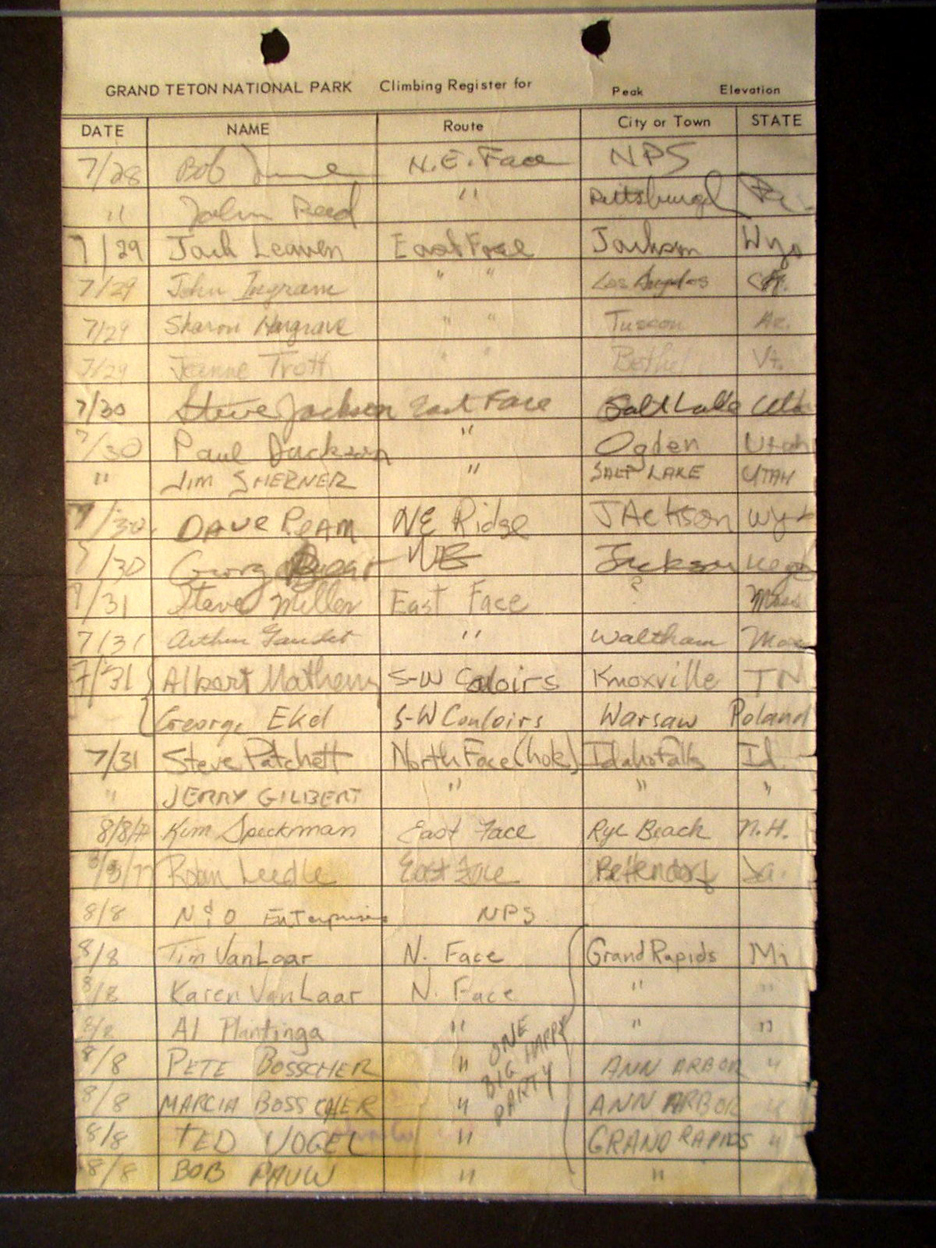 GRAND TETON NATIONAL PARK Climbing Register for Peak Elevation
DATE NAME Route City or Town STATE
7/28 Bob N.E. Face NPS
" John Reed " Pittsburgh Pa.
7/29 Jack Leaven East Face Jackson Wyo
7/29 John Ingram " " Los Angeles
7/29 Sharon Hargrave " " Tuscon Az.
7/29 Jeanne Trott " " Bethel Vt.
7/30 Steve Jackson East Face Salt Lake Utah
7/30 Paul Jackson " Ogden Utah
" JIM SHERNER " SALT LAKE UTAH
7/30 DAVE REAM NE Ridge JAckson Wyo
7/30 NE Jackson
7/31 Steve Miller East Face ? Mass
7/31 Arthur Gaudet " Waltham Mass
7/31 Albert Matheny S-W Coloirs Knoxville TN
George Ekel S-W Couloirs Warsaw Poland
7/31 Steve Patchett North Face (hok) Idaho Falls Id.
" JERRY GILBERT " " "
8/8/77 Kim Speckman East Face Rye Beach N.H.
8/8/77 Robin Leedle East Face Bettendorf Ia.
8/8 N & O Enterprises NPS
8/8 Tim VanLaar N. Face Grand Rapids Mi
8/8 Karen VanLaar N. Face " "
8/8 Al Plantinga " " "
8/8 PETE BOSSCHER " ANN ARBOR "
8/8 MARCIA BOSSCHER " ANN ARBOR "
8/8 TED VOGEL " GRAND RAPIDS "
8/8 BOB PAUW " "
ONE
BIG HAPPY
PARTY